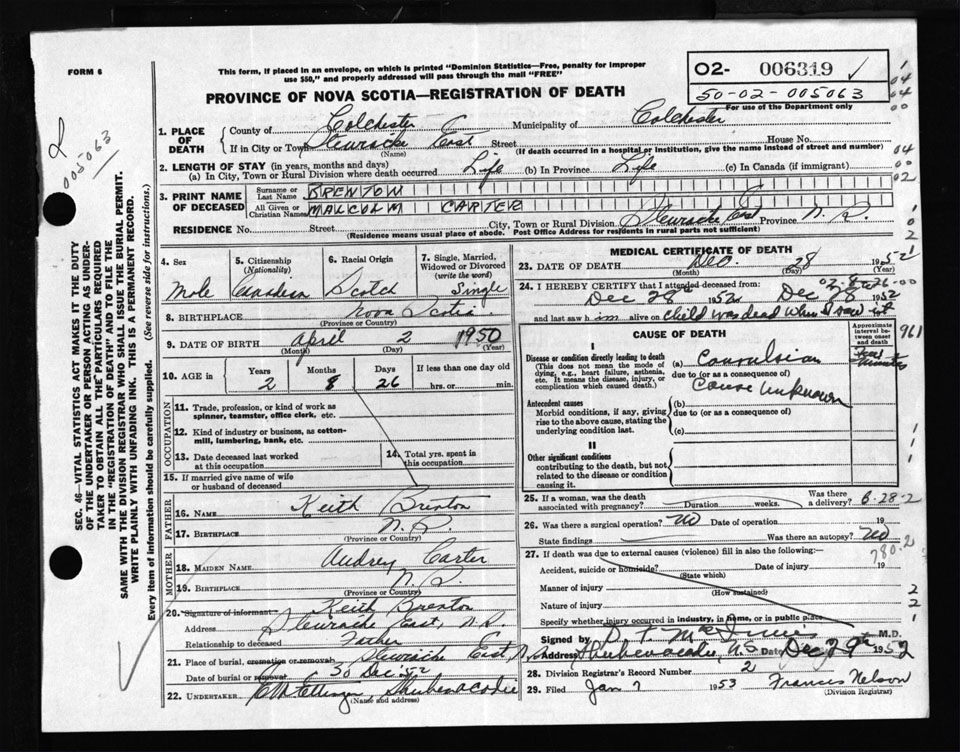 FORM 6
This form, if placed in an envelope, on which is printed "Dominion Statistics—Free, penalty for improper
use $50," and properly addressed will pass through the mail "FREE"
02- 006319 ✓
50-02-005063
For use of the Department only
PROVINCE OF NOVA SCOTIA—REGISTRATION OF DEATH
005063
SEC. 46—VITAL STATISTICS ACT MAKES IT THE DUTY
OF THE UNDERTAKER OR PERSON ACTING AS UNDER-
TAKER TO OBTAIN ALL THE PARTICULARS REQUIRED
IN THE "REGISTRATION OF DEATH" AND TO FILE THE
SAME WITH THE DIVISION REGISTRAR WHO SHALL ISSUE THE BURIAL PERMIT.
WRITE PLAINLY WITH UNFADING INK. THIS IS A PERMANENT RECORD.
Every item of information should be carefully supplied. (See reverse side for instructions.)
1. PLACE OF DEATH County of Colchester Municipality of Colchester
If in City or Town Stewiacke East Street House No.
(Name) (If death occurred in a hospital or institution, give the name instead of street and number)
2. LENGTH OF STAY (in years, months and days)
(a) In City, Town or Rural Division where death occurred Life (b) In Province Life (c) In Canada (if immigrant)
3. PRINT NAME OF DECEASED Surname or Last Name BRENTON
All Given or Christian Names MALCOLM CARTER
RESIDENCE No. Street City, Town or Rural Division Stewiacke East Province N.S.
(Residence means usual place of abode. Post Office Address for residents in rural parts not sufficient)
4. Sex Male
5. Citizenship (Nationality) Canadian
6. Racial Origin Scotch
7. Single, Married, Widowed or Divorced (write the word) Single
8. BIRTHPLACE Nova Scotia
(Province or Country)
9. DATE OF BIRTH April 2 1950
(Month) (Day) (Year)
10. AGE Years 2 Months 8 Days 26 If less than one day
hrs. or min.
OCCUPATION
11. Trade, profession, or kind of work as
spinner, teamster, office clerk, etc.
12. Kind of industry or business, as cotton-
mill, lumbering, bank, etc.
13. Date deceased last worked
at this occupation
14. Total yrs. spent in
this occupation
15. If married give name of wife
or husband of deceased
FATHER
16. NAME Keith Brenton
17. BIRTHPLACE N.S.
(Province or Country)
MOTHER
18. MAIDEN NAME Audrey Carter
19. BIRTHPLACE N.S.
(Province or Country)
20. Signature of informant Keith Brenton
Address Stewiacke East, N.S.
Relationship to deceased Father
21. Place of burial, cremation or removal Stewiacke East N.S.
Date of burial or removal 30 Dec. 52
22. UNDERTAKER Shubenacadie
(Name and address)
MEDICAL CERTIFICATE OF DEATH
23. DATE OF DEATH Dec. 28 1952
(Month) (Day) (Year)
24. I HEREBY CERTIFY that I attended deceased from:
Dec 28th 1952 to Dec 28 1952
and last saw him alive on child was dead when I saw it
CAUSE OF DEATH
Approximate interval between onset and death
I
Disease or condition directly leading to death
(This does not mean the mode of
dying, e.g., heart failure, asthenia,
etc. It means the disease, injury, or
complication which caused death.)
(a) Convulsion
Few Minutes
due to (or as a consequence of)
Cause Unknown
Antecedent causes
Morbid conditions, if any, giving
rise to the above cause, stating the
underlying condition last.
(b)
due to (or as a consequence of)
(c)
II
Other significant conditions
contributing to the death, but not
related to the disease or condition
causing it.
961
25. If a woman, was the death
associated with pregnancy? Duration weeks. Was there
a delivery? 6-28-2
26. Was there a surgical operation? No Date of operation 19
State findings Was there an autopsy? No
780.2
27. If death was due to external causes (violence) fill in also the following:—
Accident, suicide or homicide? Date of injury 19
(State which)
Manner of injury
(How sustained)
Nature of injury
Specify whether injury occurred in industry, in home, or in public place
Signed by M.D.
Address Shubenacadie, N.S. Date Dec 29th 1952
28. Division Registrar's Record Number 2
29. Filed Jan 7 1953 Francis Nelson
(Division Registrar)